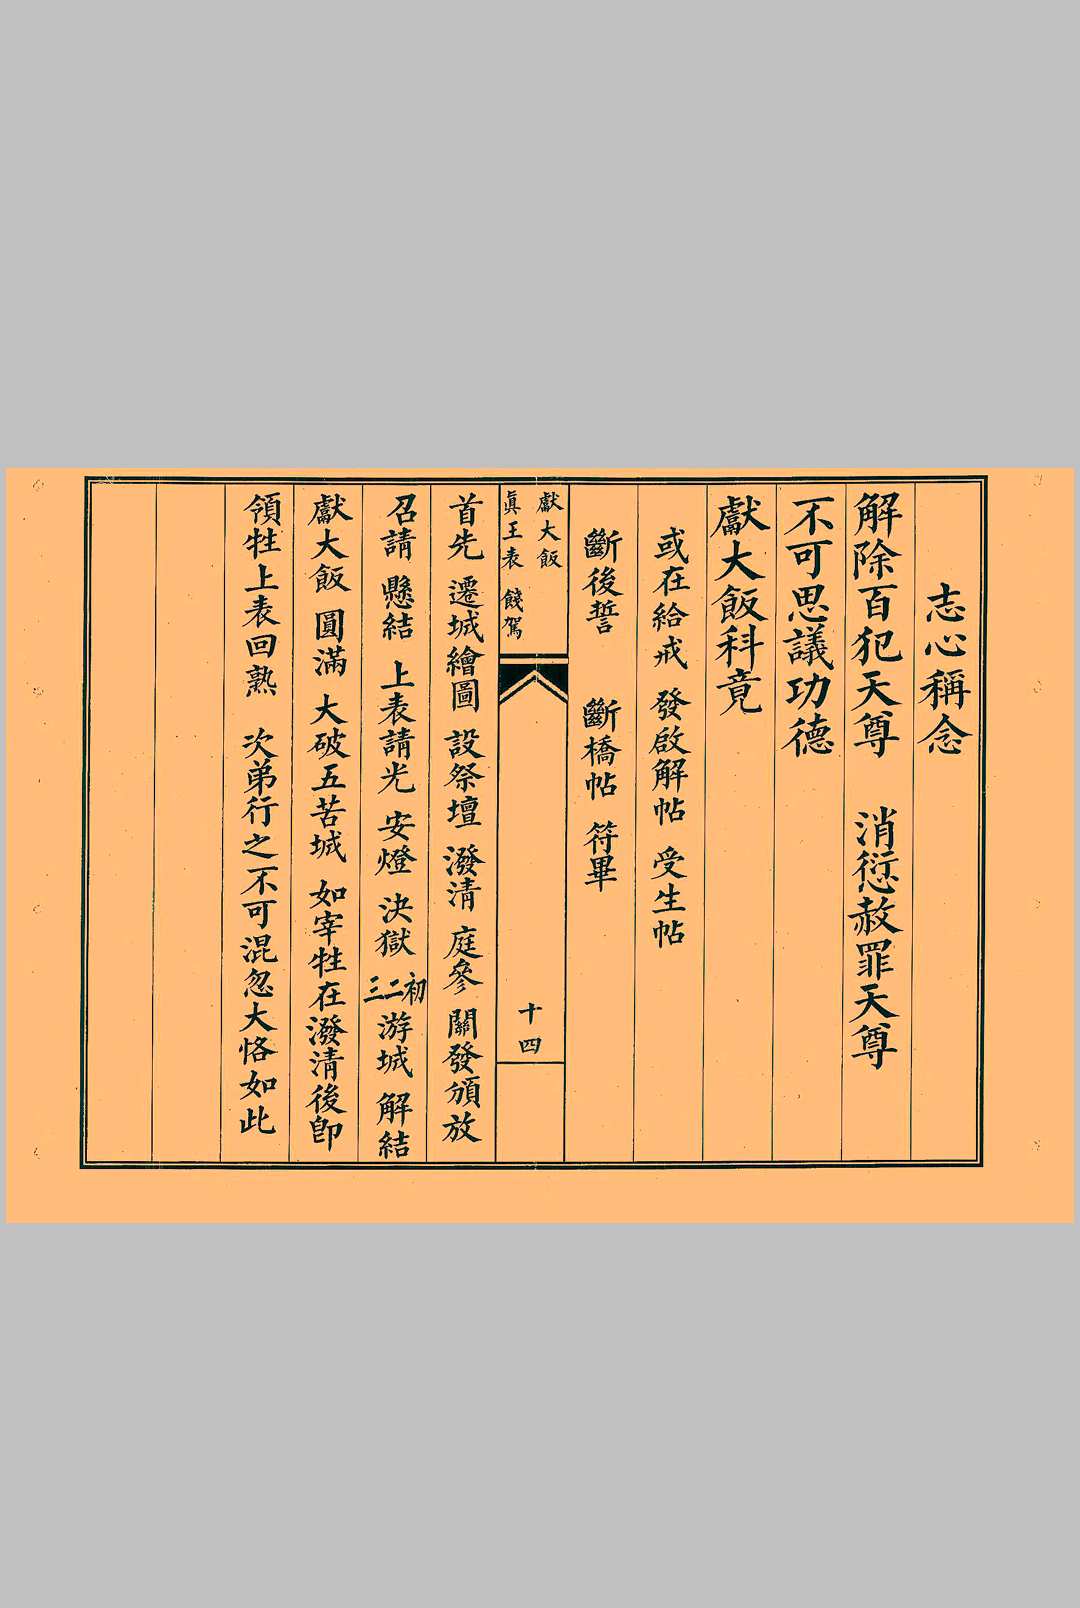 志心稱念
解除百犯天尊　消愆赦罪天尊
不可思議功德
獻大飯科竟
或在給戒　發啟解帖　受生帖
斷後誓　斷橋帖　符畢
獻大飯
眞王表　餞駕
十四
首先　遷城繪圖　設祭壇　潑清　庭參　關發頒放
召請　懸結　上表請光　安燈　決獄　初二三　游城　解結
獻大飯　圓滿　大破五苦城　如宰牲在潑清後卽
領牲上表回熟　次弟行之不可混忽大恪如此